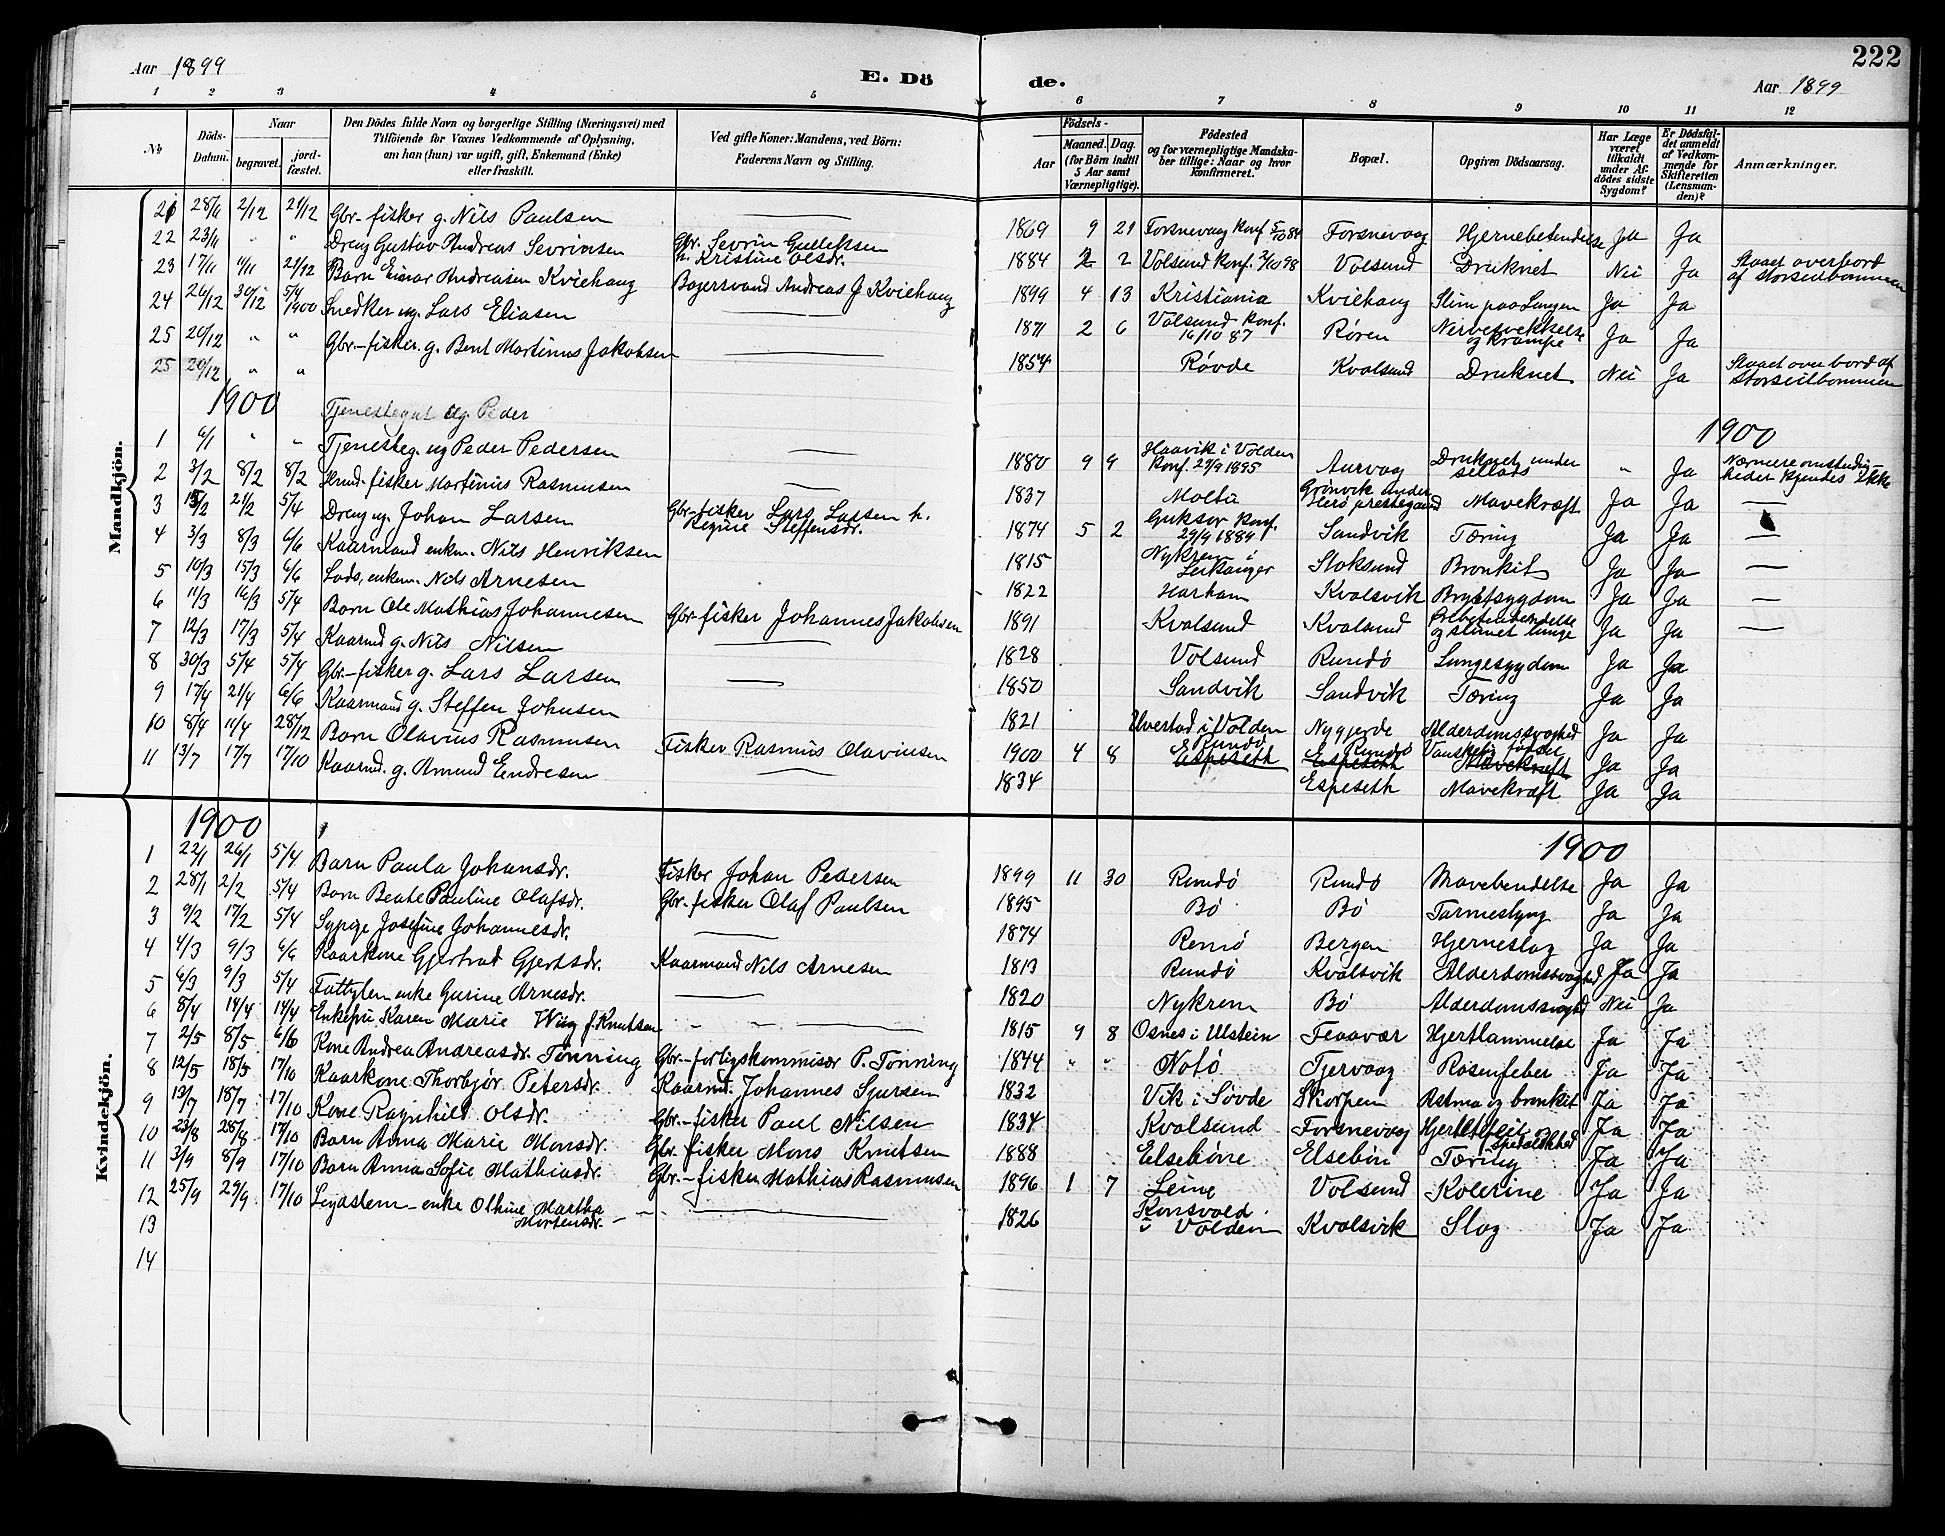 Aar 1899
E. Dö
de.
222
Aar 1899
1 2 3 4 5 6 7 8 9 10 11 12
No
Döds-Datum.
Naar
begravet.
jord-fæstet.
Den Dödes fulde Navn og borgerlige Stilling (Næringsvei) med
Tilföiende for Voxnes Vedkommende af Oplysning,
om han (hun) var ugift, gift, Enkemand (Enke)
eller fraskilt.
Ved gifte Koner: Mandens, ved Börn:
Faderens Navn og Stilling.
Födsels-
Aar
Maaned. Dag.
(for Börn indtil
5 Aar samt
Værnepligtige).
Födested
og for værnepligtige Mandska-
ber tillige: Naar og hvor
konfirmeret.
Bopæl.
Opgiven Dödsaarsag.
Har Læge
været
tilkaldt
under Af-
dödes sidste
Sygdom?
Er Dödsfal-
det anmeldt
af Vedkom-
mende for
Skifteretten
(Lensman-
den)?
Anmærkninger.
Mandkjön.
21 28/11 2/12 21/12 Gbr-fisker g. Nils Paulsen 1869 9 21 Forsnevaag Konf. 5/10 84 Forsnevaag Hjernebetendelse Ja Ja
22 23/11 " " Dreng Gustav Andreas Sevrinsen Gbr. Sevrin Gulleksen
h. Kristine Olsdr. 1884 2 2 Volsund Konf. 2/10 98 Volsund Druknet Nei Ja Slaaet overbord
af storseilbommen
23 17/11 21/12 Barn Einar Andreasen Kviehaug Bogersvand Andreas J Kviehaug 1899 4 13 Kristiania Kviehaug Slim paa Lungen Ja Ja
24 26/12 30/12 5/4 1900 Snedker ug. Lars Eliasen 1871 2 6 Volsund Konf.
16/10 87 Røren Nervesvekkelse
og krampe Ja Ja
25 20/12 " " Gbr-fisker g. Bent Martinus Jakobsen 1854 Røvde Kvalsund Druknet Nei Ja Slaaet over bord af
storseilbommen
25 20/12 " "
1900 Tjenestegut ug. Peder
1900
1 6/1 " " Tjenesteg. ug Peder Pedersen 1880 9 9 Haavik i Volden
Konf. 29/9 1895 Aurvaag Druknet under
" Ja Nærmere omstændig-
heder kjendes ikke
2 3/2 8/2 8/2 Husmd-fisker Martinus Rasmusen 1837 Moltu Grönvik under
Herö prestegaard Mavekræft Ja Ja —
3 15/2 21/2 5/4 Dreng ug. Johan Larsen Gbr-fisker Lars Larsen h.
Regine Steffensdr. 1874 5 2 Gurksør Konf.
29/9 1889 Sandvik Tæring Ja Ja —
4 3/3 8/3 6/6 Kaarmand enkm. Nils Henriksen 1815 Nykrem i
Leikanger Stoksund Bronkit Ja Ja —
5 10/3 15/3 6/6 Lods, enkem. Nils Arnesen 1822 Harham Kvalsvik Brystsygdom Ja Ja —
6 11/3 16/3 5/4 Barn Ole Mathias Johannesen Gbr-fisker Johannes Jakobsen 1891 Kvalsund Kvalsund
og slimet lunge Ja Ja —
7 12/3 17/3 5/4 Kaarmd g. Nils Nilsen 1828 Volsund Rundö Lungesygdom Ja Ja
8 30/3 5/4 5/4 Gbr-fisker g. Lars Larsen 1850 Sandvik Sandvik Tæring Ja Ja
9 17/4 21/4 6/6 Kaarmand g. Steffen Johnsen 1821 Ulvestad i Volden Nygjerde Alderdomssvaghed Ja Ja
10 8/4 11/4 28/12 Barn Olavius Rasmusen Fisker Rasmus Olaviusen 1900 4 8 Rundö
Espeseth Rundö
Espeseth Vanskelig fødsel
Mavekræft Ja Ja
11 13/7 17/7 17/10 Kaarmd. g. Amund Endresen 1834 Espeseth Mavekræft Ja Ja
Kvindekjön.
1900
1900
1 22/1 26/1 5/4 Barn Paula Johansdr. Fisker Johan Pedersen 1899 11 30 Rundö Rundö Mavebendelse Ja Ja
2 28/1 2/2 5/4 Barn Beate Pauline Olafsdr. Gbr.-fisker Olaf Paulsen 1895 Bö Bö Tarmeslyng Ja Ja
3 9/2 17/2 5/4 Sypige Josefine Johannesdr. 1874 Remö Bergen Hjerneslag Ja Ja
4 4/3 9/3 6/6 Kaarkone Gjertrud Gjertsdr. Kaarmand Nils Arnesen 1813 Rundö Kvalsvik Alderdomssvaghed Ja Ja
5 6/3 9/3 5/4 Fattiglem enke Gurine Arnesdr. 1820 Nykrem Bö Alderdomssvaghed Nei Ja
6 8/4 14/4 14/4 Enkefru Karen Marie Wiig f. Knutsen 1815 9 8 Osnes i Ulstein Flaavær Hjertlammelse Ja Ja
7 2/5 8/5 6/6 Kone Andrea Andreasdr. Tønning Gbr-forligskommisær P. Tønning 1844 " " Notö Tjervaag Rosenfeber Ja Ja
8 12/5 18/5 17/10 Kaarkone Thorbjør Petersdr. Kaarmd. Johannes Sjursen 1832 Vik i Søvde Skorpen Astma og bronkit Ja Ja
9 13/7 18/7 17/10 Kone Ragnhild Olsdr. Gbr.-fisker Paul Nilsen 1834 Kvalsund Forsnevaag Hjertefeil og
spedalskhed Ja Ja
10 23/8 28/8 17/10 Barn Anna Marie Monsdr. Gbr. fisker Mons Knutsen 1888 Elsebøne Elsebøn Tæring Ja Ja
11 3/9 8/9 17/10 Barn Anna Sofie Mathiasdr. Gbr.-fisker Mathias Rasmusen 1896 1 7 Leine Volsund Kolerine Ja Ja
12 25/9 29/9 17/10 Legdslem-enke Othine Martha
Mortensdr. 1826
i Volden Kvalsvik Slag Ja Ja
13
14